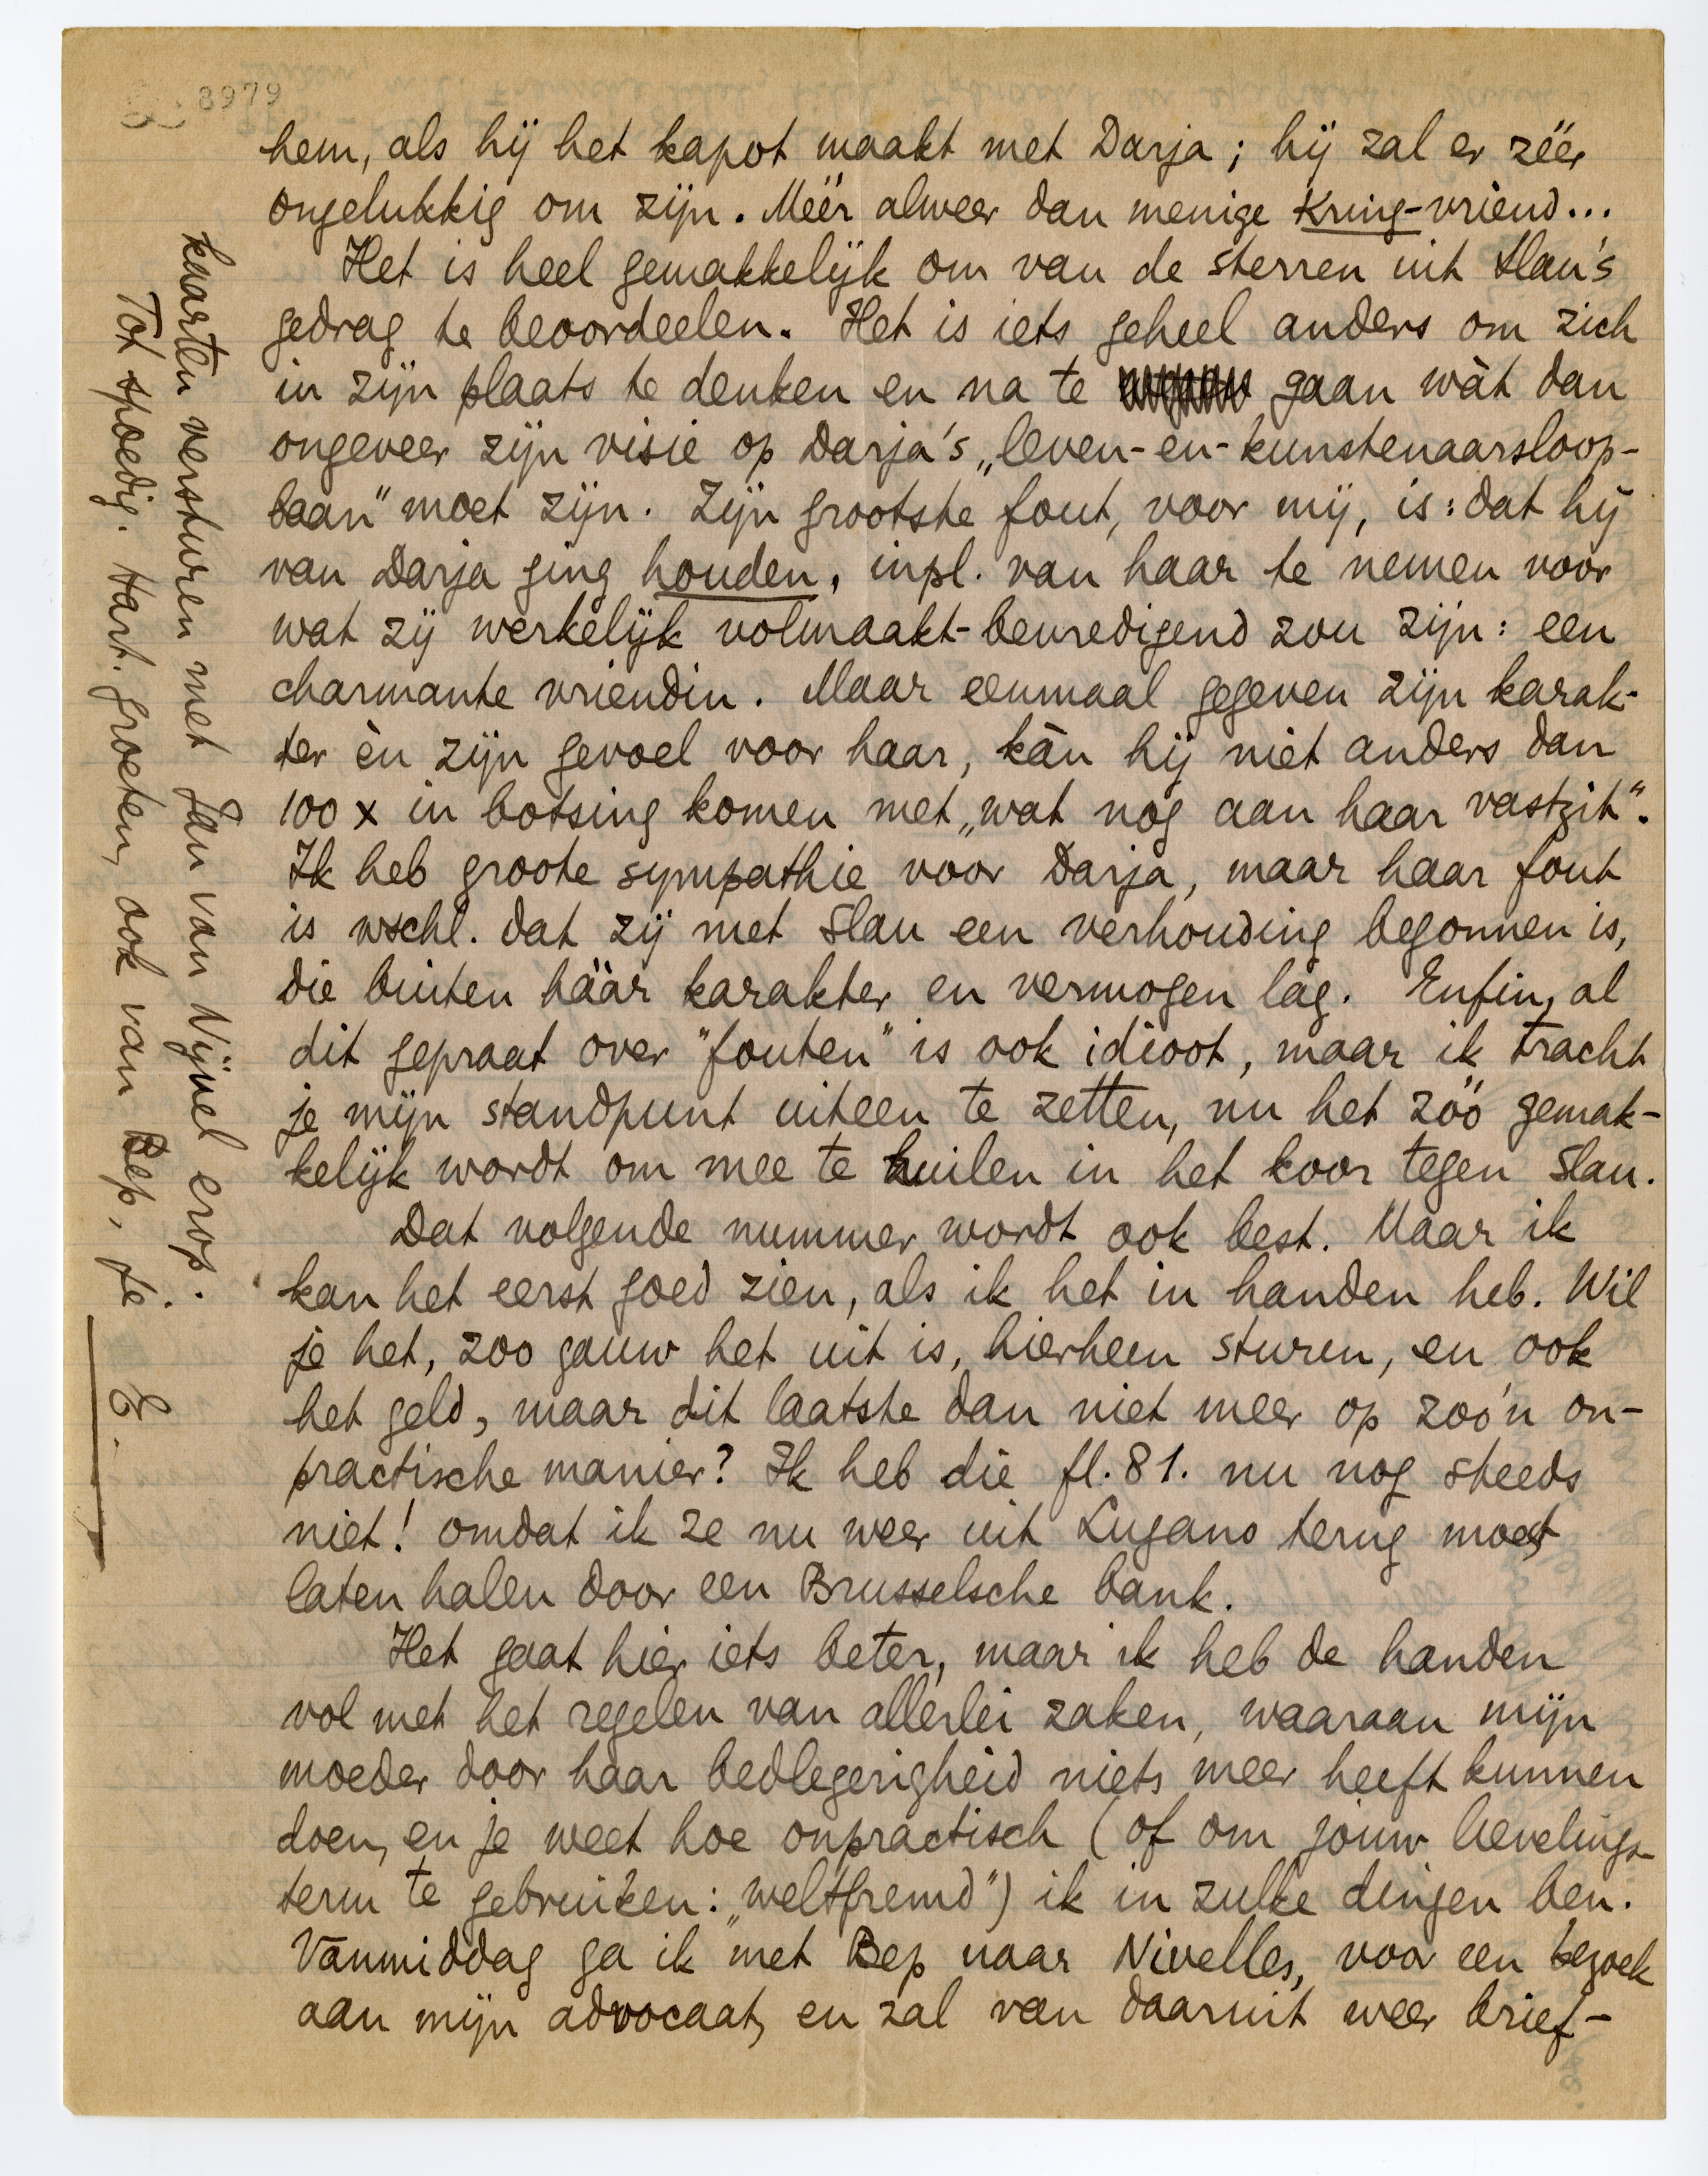 8979
hem, als hij het kapot maakt met Darja; hij zal er zéér
ongelukkig om zijn. Méér alweer dan menige Kring-vriend...
Het is heel gemakkelijk om van de sterren uit Slau's
gedrag te beoordeelen. Het is iets geheel anders om zich
in zijn plaats te denken en na te gaan wàt dan
ongeveer zijn visie op Darja's „leven-en-kunstenaarsloop-
baan" moet zijn. Zijn grootste fout, voor mij, is: dat hij
van Darja ging houden, inpl. van haar te nemen voor
wat zij werkelijk volmaakt-bevredigend zou zijn: een
charmante vriendin. Maar eenmaal gegeven zijn karak-
ter èn zijn gevoel voor haar, kàn hij niet anders dan
100 x in botsing komen met „wat nog aan haar vastzit".
Ik heb groote sympathie voor Darja, maar haar fout
is wschl. dat zij met Slau een verhouding begonnen is,
die buiten háár karakter en vermogen lag. Enfin, al
dit gepraat over "fouten" is ook idioot, maar ik tracht
je mijn standpunt uiteen te zetten, nu het zóó gemak-
kelijk wordt om mee te huilen in het koor tegen Slau.
Dat volgende nummer wordt ook best. Maar ik
kan het eerst goed zien, als ik het in handen heb. Wil
je het, zoo gauw het uit is, hierheen sturen, en ook
het geld, maar dit laatste dan niet meer op zoo'n on-
practische manier? Ik heb die fl. 81. nu nog steeds
niet! omdat ik ze nu weer uit Lugano terug moest
laten halen door een Brusselsche bank.
Het gaat hier iets beter, maar ik heb de handen
vol met het regelen van allerlei zaken, waaraan mijn
moeder door haar bedlegerigheid niets meer heeft kunnen
doen, en je weet hoe onpractisch (of om jouw lievelings-
term te gebruiken: „weltfremd") ik in zulke dingen ben.
Vanmiddag ga ik met Bep naar Nivelles, voor een bezoek
aan mijn advocaat, en zal van daaruit weer brief-
kaarten versturen met Jan van Nijvel erop.
Tot spoedig. Hart. groeten, ook van Bep, je
E.